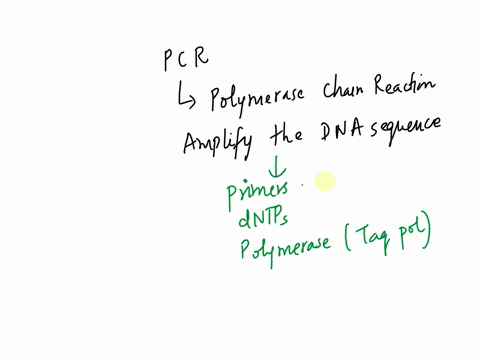 PCR
↳ Polymerase Chain Reaction
Amplify the DNA sequence
↓
primers .
dNTPs
Polymerase (Taq pol)